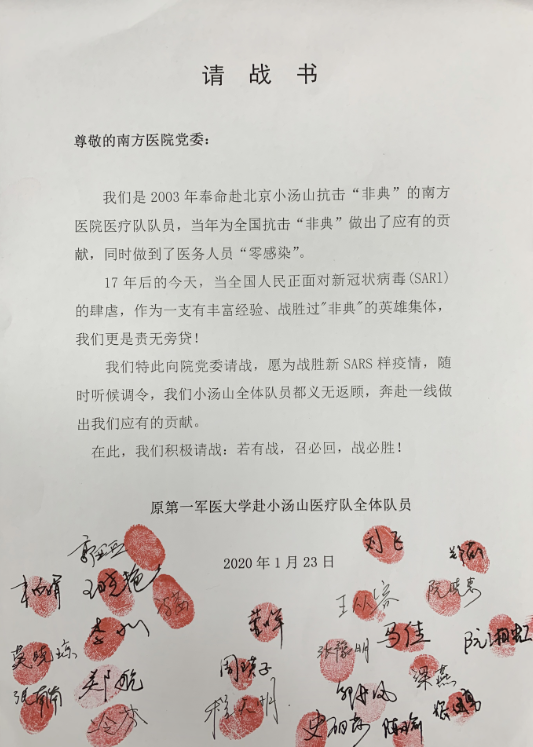 请 战 书
尊敬的南方医院党委：
我们是 2003 年奉命赴北京小汤山抗击“非典”的南方
医院医疗队队员，当年为全国抗击“非典”做出了应有的贡
献，同时做到了医务人员“零感染”。
17 年后的今天，当全国人民正面对新冠状病毒(SARI)
的肆虐，作为一支有丰富经验、战胜过"非典"的英雄集体，
我们更是责无旁贷！
我们特此向院党委请战，愿为战胜新 SARS 样疫情，随
时听候调令，我们小汤山全体队员都义无返顾，奔赴一线做
出我们应有的贡献。
在此，我们积极请战：若有战，召必回，战必胜！
原第一军医大学赴小汤山医疗队全体队员
2020 年 1 月 23 日
刘飞
马佳
梁燕